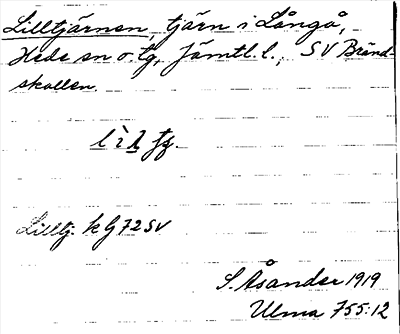 Lilltjärnen, tjärn i Långå,
Hede sn o. tg, Jämtl. l., SV Bränd-
skallen.
Lilltj. k G 72 SV
S. Åsander 1919
Ulma 755:12